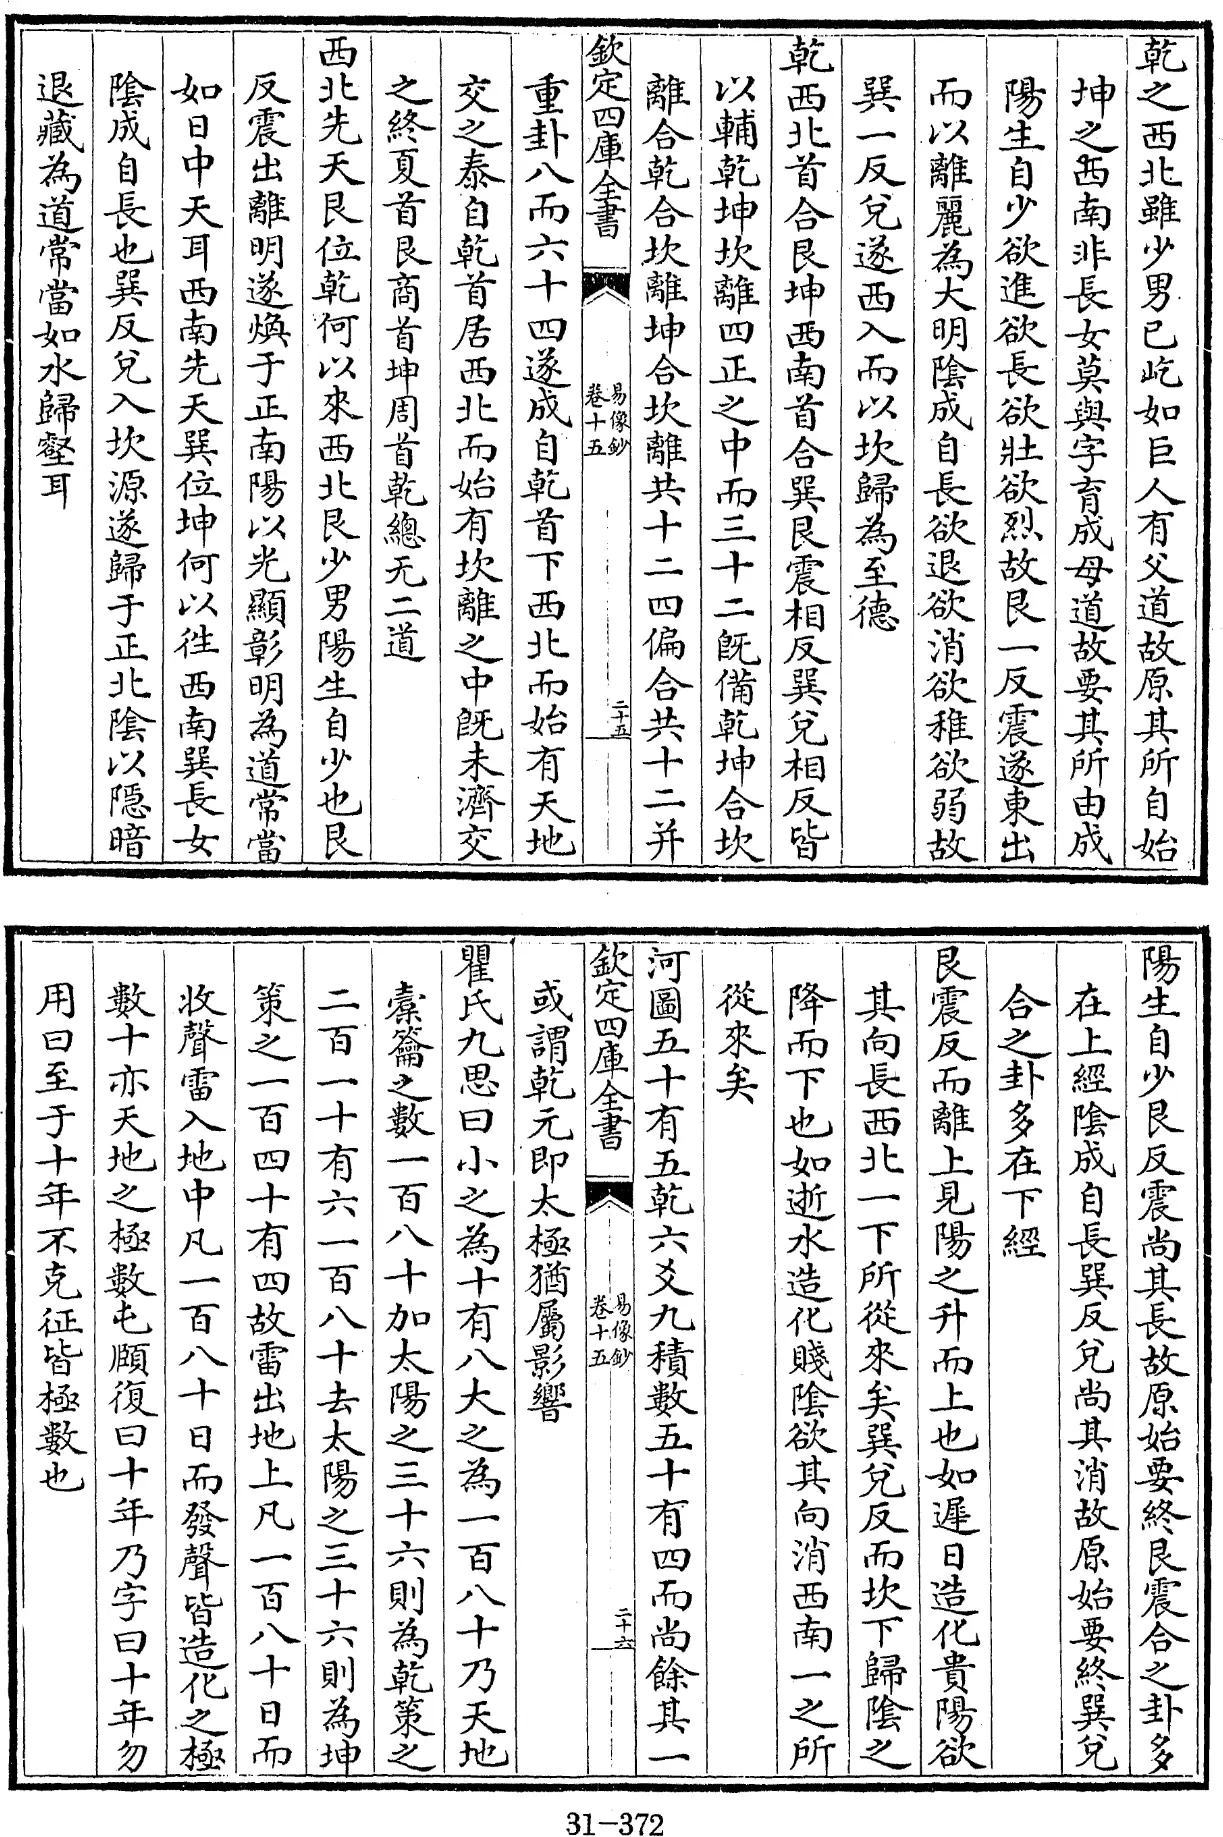 乾之西北雖少男已屹如巨人有父道故原其所自始
坤之西南非長女莫與字育成母道故要其所由成
陽生自少欲進欲長欲壯欲烈故艮一反震遂東出
而以離麗為大明陰成自長欲退欲消欲稚欲弱故
巽一反兌遂西入而以坎歸為至德
乾西北首合艮坤西南首合巽艮震相反巽兌相反皆
以輔乾坤坎離四正之中而三十二旣備乾坤合坎
離合乾合坎離坤合坎離共十二四偏合共十二并
欽定四庫全書
易像鈔
卷十五
二十五
重卦八而六十四遂成自乾首下西北而始有天地
交之泰自乾首居西北而始有坎離之中旣未濟交
之終夏首艮商首坤周首乾總无二道
西北先天艮位乾何以來西北艮少男陽生自少也艮
反震出離明遂煥于正南陽以光顯彰明為道常當
如日中天耳西南先天巽位坤何以徃西南巽長女
陰成自長也巽反兌入坎源遂歸于正北陰以隱暗
退藏為道常當如水歸壑耳
陽生自少艮反震尚其長故原始要終艮震合之卦多
在上經陰成自長巽反兌尚其消故原始要終巽兌
合之卦多在下經
艮震反而離上見陽之升而上也如遲日造化貴陽欲
其向長西北一下所從來矣巽兌反而坎下歸陰之
降而下也如逝水造化賤陰欲其向消西南一之所
從來矣
河圖五十有五乾六爻九積數五十有四而尚餘其一
欽定四庫全書
易像鈔
卷十五
二十六
或謂乾元即太極猶屬影響
瞿氏九思曰小之為十有八大之為一百八十乃天地
橐籥之數一百八十加太陽之三十六則為乾策之
二百一十有六一百八十去太陽之三十六則為坤
策之一百四十有四故雷出地上凡一百八十日而
收聲雷入地中凡一百八十日而發聲皆造化之極
數十亦天地之極數屯頤復曰十年乃字曰十年勿
用曰至于十年不克征皆極數也
31-372